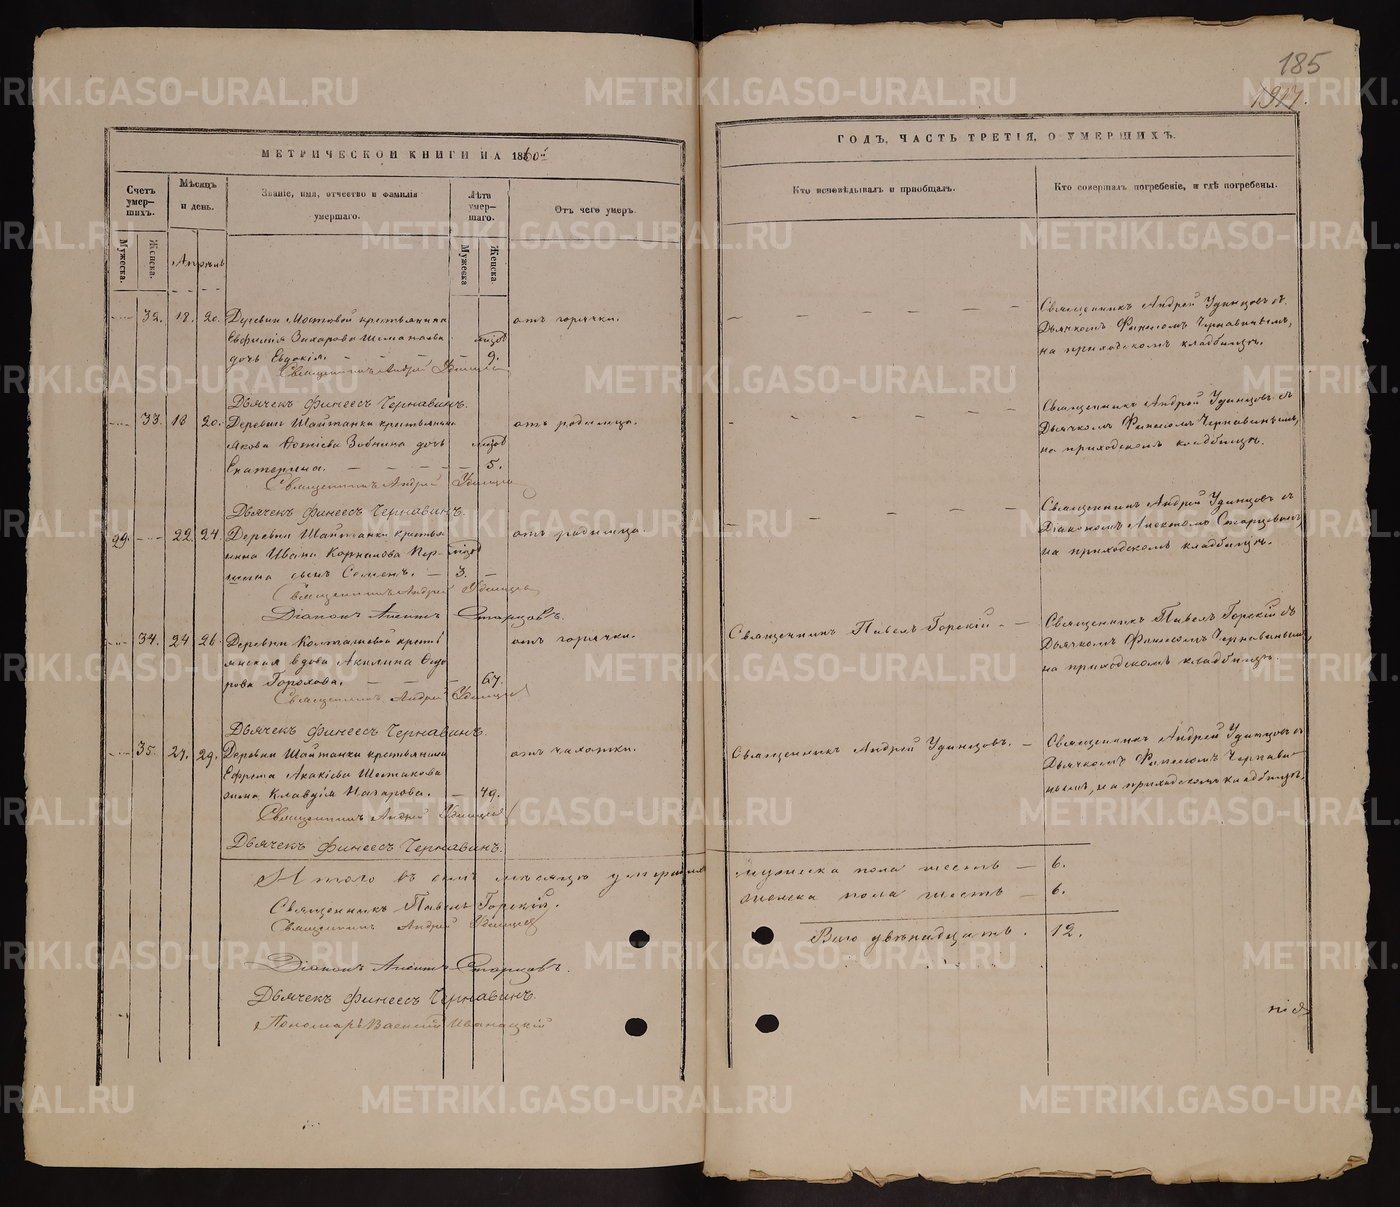 185
МЕТРИЧЕСКОЙ КНИГИ НА 1860й
Счетъ умер-шихъ.
Мужеска.
Женска.
Мѣсяцъ и день.
Званіе, имя, отчество и фамилія умершаго.
Лѣта умер-шаго.
Мужеска
Женска.
Отъ чего умеръ.
Апрѣль
32. 18. 20. Деревни Мостовой крестьянина отъ горячки.
Евфимія Захарова нѣд
дочь Евдокія. 9.
Священникъ Андрей Удинцев
Дьячекъ Финеесъ Чернавинъ.
33. 18 20. Деревни Шайтанки крестьянина отъ родимца.
Якова Зобнина дочь
Екатерина. 5.
Священникъ Андрей Удинцев
Дьячекъ Финеесъ Чернавинъ.
29. 22. 24. Деревни Шайтанки крестья- отъ родимца.
нина Ивана Корнилова Пер-
шина сынъ Семенъ. 3.
Священникъ Андрей Удинцев
Діаконъ Старцовъ.
34. 24 26. Деревни Колташевой крестья- отъ горячки.
янская вдова Акилина Ѳедо
рова Горохова. 67.
Священникъ Андрей Удинцев
Дьячекъ Финеесъ Чернавинъ.
35. 27. 29. Деревни Шайтанки крестьянина отъ чахотки.
Ефрема Акакіева Шестакова
жена Клавдія Назарова. 49.
Священникъ Андрей Удинцев
Дьячекъ Финеесъ Чернавинъ.
Итого въ семъ мѣсяцѣ умершихъ
Священникъ Павелъ Горскій.
Священникъ Андрей Удинцев
Діаконъ Старцовъ.
Дьячекъ Финеесъ Чернавинъ.
Пономарь Василій Иваницкій
ГОДЪ, ЧАСТЬ ТРЕТІЯ, О УМЕРШИХЪ.
Кто исповѣдывалъ и пріобщалъ.
Кто совершалъ погребеніе, и гдѣ погребены.
Священникъ Андрей Удинцовъ съ
Дьячкомъ Финеесомъ Чернавинымъ,
на приходскомъ кладбищѣ.
Священникъ Андрей Удинцовъ съ
Дьячкомъ Финеесомъ Чернавинымъ,
на приходскомъ кладбищѣ.
Священникъ Андрей Удинцовъ съ
Діакономъ Старцовымъ,
на приходскомъ кладбищѣ.
Священникъ Павелъ Горскій
Священникъ Павелъ Горскій съ
Дьячкомъ Финеесомъ Чернавинымъ,
на приходскомъ кладбищѣ.
Священникъ Андрей Удинцовъ.
Священникъ Андрей Удинцовъ съ
Дьячкомъ Финеесомъ Чернави-
нымъ, на приходскомъ кладбищѣ.
мужеска пола шесть 6.
женска пола шесть 6.
Всего двѣнадцать. 12.
METRIKI.GASO-URAL.RU